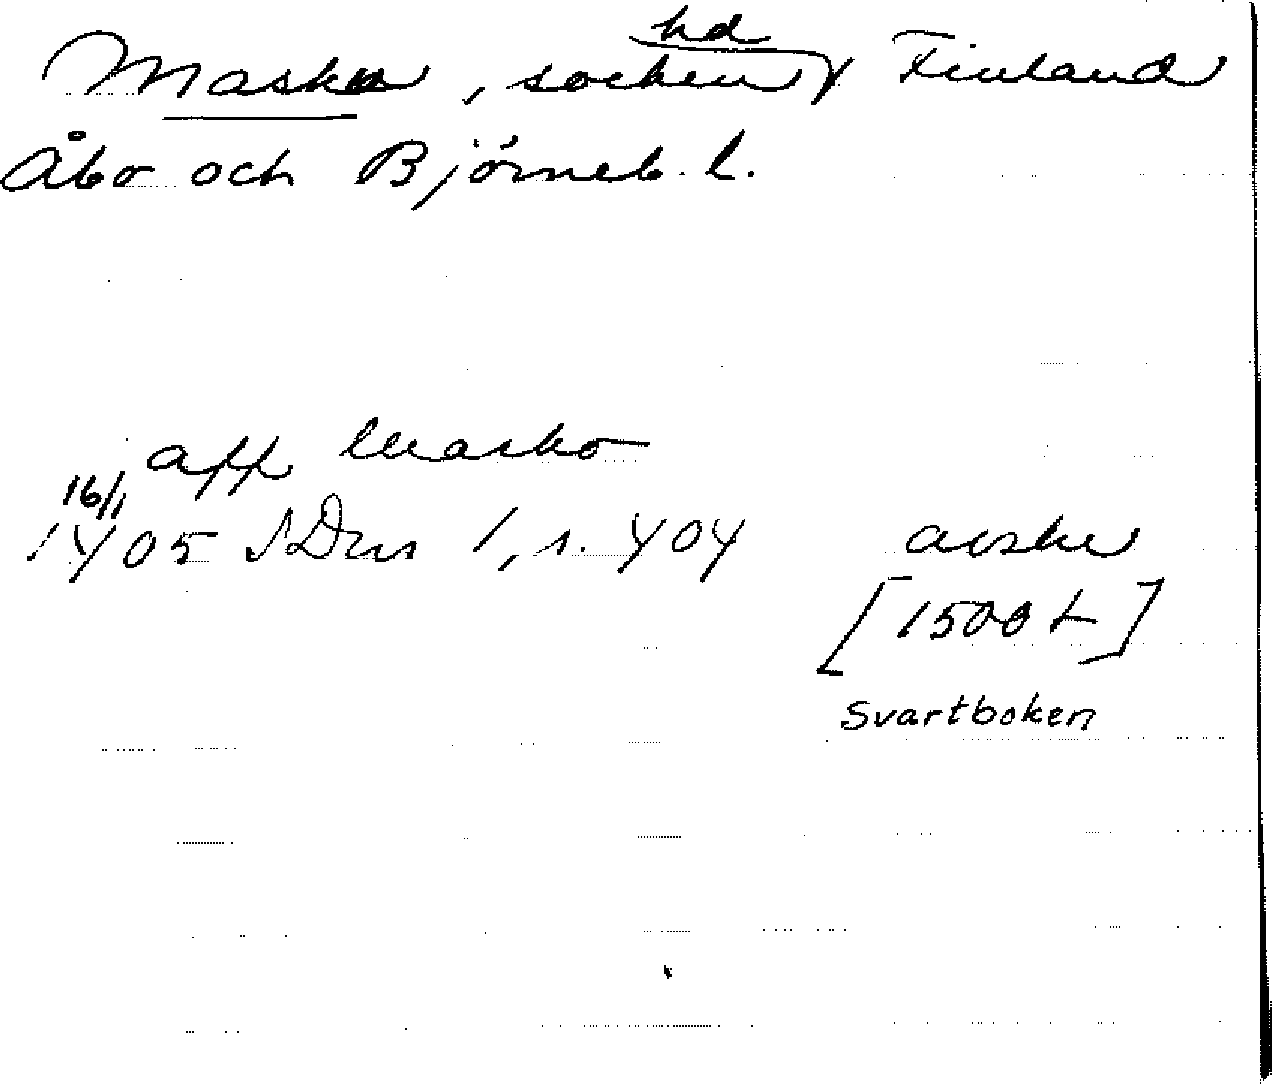 hd
Masku, socken, Finland
Åbo och Björneb. l.
aff Masko
16/1
1405 SDns 1, s. 404 avskr
[1500 t]
Svartboken